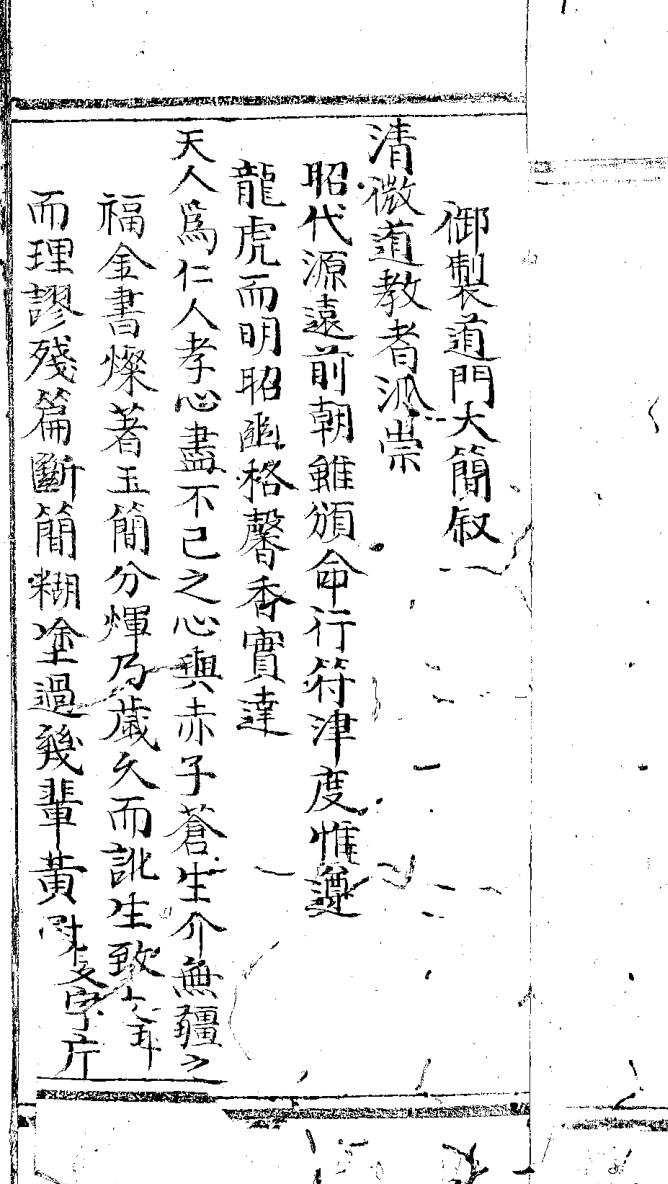 御製道門大簡叙
清微道教者派崇
昭代源遠前朝雖頒命行符津度惟遵
龍虎而明昭幽格馨香實達
天人爲仁人孝心盡不已之心與赤子蒼生介無疆之
福金書燦著玉簡分輝乃歲久而訛生致
而理謬殘篇斷簡糊塗過幾輩黃